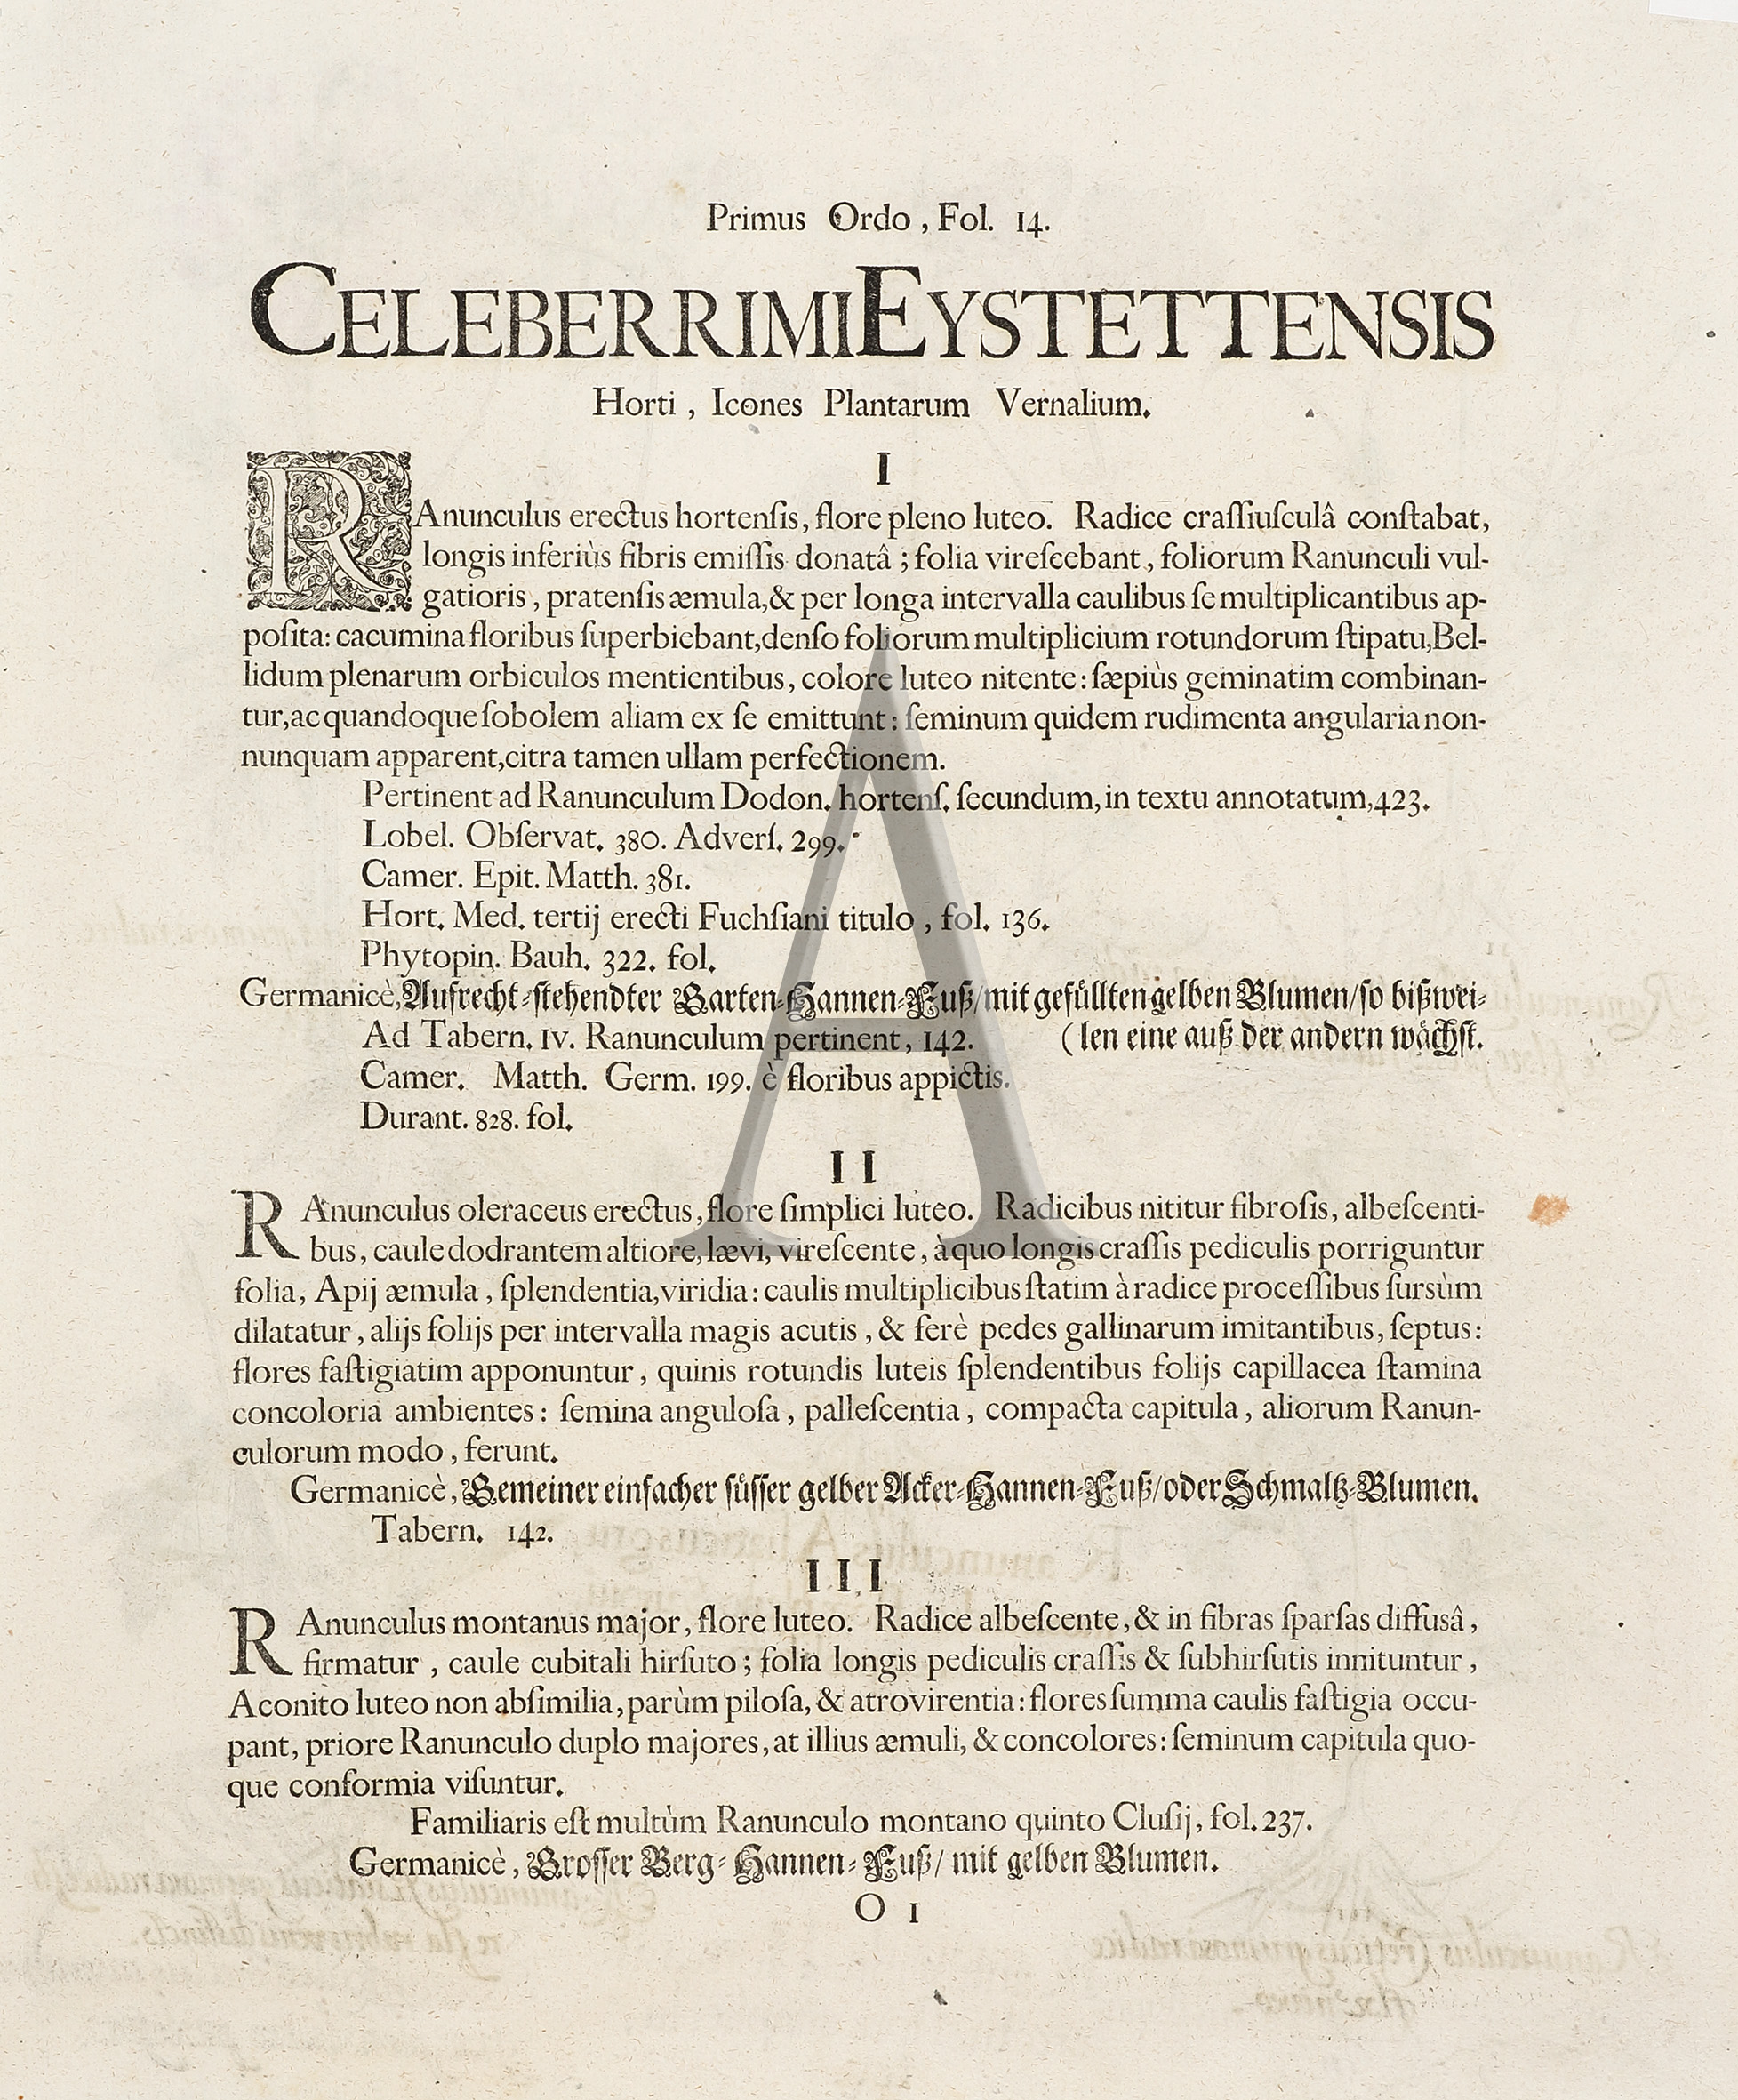 Primus Ordo, Fol. 14.
CELEBERRIMI EYSTETTENSIS
Horti, Icones Plantarum Vernalium.
I
RAnunculus erectus hortenſis, flore pleno luteo. Radice craſſiuſculâ conſtabat,
longis inferiùs fibris emiſſis donatâ; folia vireſcebant, foliorum Ranunculi vul-
gatioris, pratenſis æmula, & per longa intervalla caulibus ſe multiplicantibus ap-
poſita: cacumina floribus ſuperbiebant, denſo foliorum multiplicium rotundorum ſtipatu, Bel-
lidum plenarum orbiculos mentientibus, colore luteo nitente: ſæpiùs geminatim combinan-
tur, ac quandoque ſobolem aliam ex ſe emittunt: ſeminum quidem rudimenta angularia non-
nunquam apparent, citra tamen ullam perfectionem.
Pertinent ad Ranunculum Dodon. hortenſ. ſecundum, in textu annotatum, 423.
Lobel. Obſervat. 380. Adverſ. 299.
Camer. Epit. Matth. 381.
Hort. Med. tertij erecti Fuchſiani titulo, fol. 136.
Phytopin. Bauh. 322. fol.
Germanicè, Aufrecht-ſtehendter Garten-Hannen-Fuß/ mit gefüllten gelben Blumen/ ſo bißwei-
Ad Tabern. IV. Ranunculum pertinent, 142. (len eine auß der andern wächſt.
Camer. Matth. Germ. 199. è floribus appictis.
Durant. 828. fol.
II
RAnunculus oleraceus erectus, flore ſimplici luteo. Radicibus nititur fibroſis, albeſcenti-
bus, caule dodrantem altiore, lævi, vireſcente, à quo longis craſſis pediculis porriguntur
folia, Apij æmula, ſplendentia, viridia: caulis multiplicibus ſtatim à radice proceſſibus ſursùm
dilatatur, alijs folijs per intervalla magis acutis, & ferè pedes gallinarum imitantibus, ſeptus:
flores faſtigiatim apponuntur, quinis rotundis luteis ſplendentibus folijs capillacea ſtamina
concoloria ambientes: ſemina anguloſa, palleſcentia, compacta capitula, aliorum Ranun-
culorum modo, ferunt.
Germanicè, Gemeiner einfacher ſüſſer gelber Acker-Hannen-Fuß/ oder Schmaltz-Blumen.
Tabern. 142.
III
RAnunculus montanus major, flore luteo. Radice albeſcente, & in fibras ſparſas diffusâ,
firmatur, caule cubitali hirſuto; folia longis pediculis craſſis & ſubhirſutis innituntur,
Aconito luteo non abſimilia, parùm piloſa, & atrovirentia: flores ſumma caulis faſtigia occu-
pant, priore Ranunculo duplo majores, at illius æmuli, & concolores: ſeminum capitula quo-
que conformia viſuntur.
Familiaris eſt multùm Ranunculo montano quinto Cluſij, fol. 237.
Germanicè, Groſſer Berg-Hannen-Fuß/ mit gelben Blumen.
O 1
A